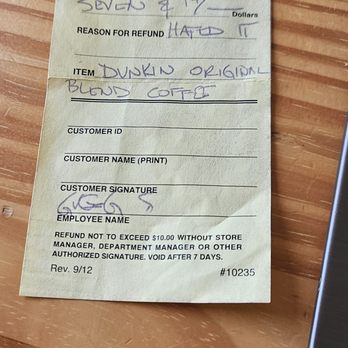 SEVEN &
Dollars
REASON FOR REFUND HATED IT
ITEM DUNKIN ORIGINAL
BLEND COFFEE
CUSTOMER ID
CUSTOMER NAME (PRINT)
CUSTOMER SIGNATURE
EMPLOYEE NAME
REFUND NOT TO EXCEED $10.00 WITHOUT STORE
MANAGER, DEPARTMENT MANAGER OR OTHER
AUTHORIZED SIGNATURE. VOID AFTER 7 DAYS.
Rev. 9/12 #10235